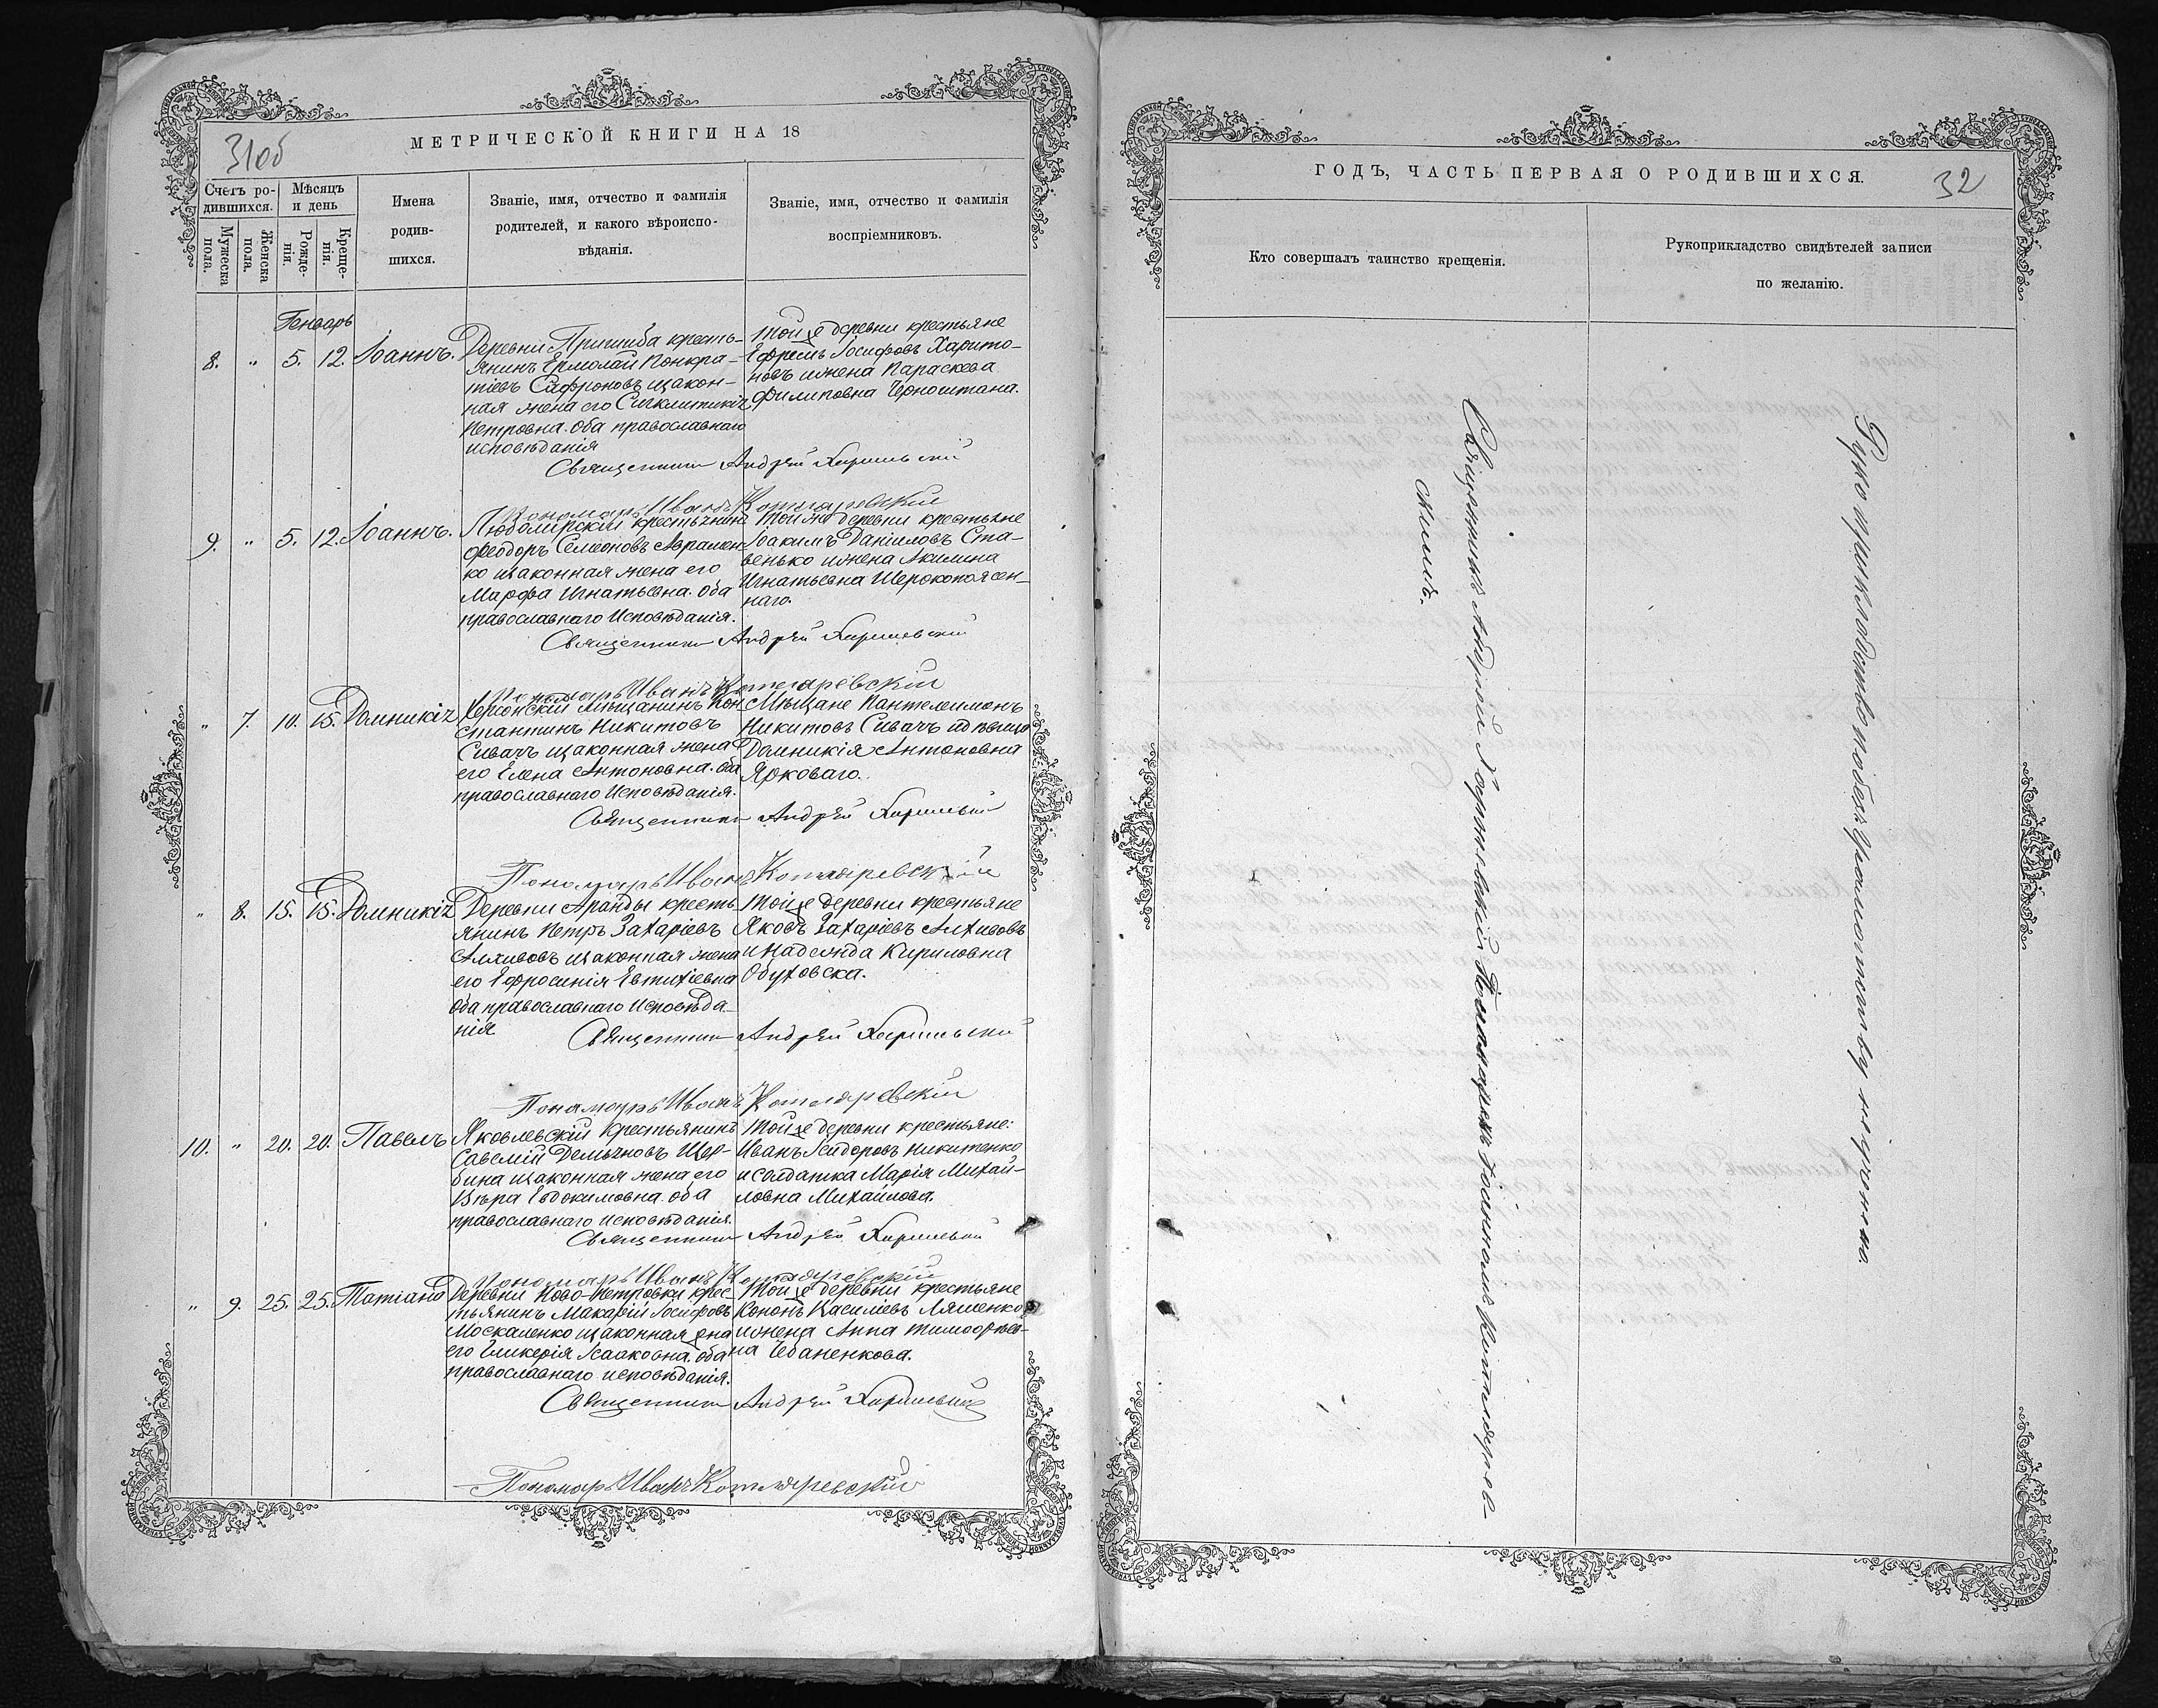 МЕТРИЧЕСКОЙ КНИГИ НА 18
31об
Счетъ ро-
дившихся.
Мужеска
пола.
Женска
пола.
Мѣсяцъ
и день
Рожде-
нія.
Креще-
нія.
Имена
родив-
шихся.
Званіе, имя, отчество и фамилія
родителей, и какого вѣроиспо-
вѣданія.
Званіе, имя, отчество и фамилія
воспріемниковъ.
Генварь
8. " 5. 12. Іоаннъ.
Деревни Пришиба кресть-
янинъ Ермолай Понкра-
тіевъ Сафроновъ изакон-
ная жена его Сигклитикія
Петровна. Оба православнаго
исповѣданія
Тойже деревни крестьяне
Ефремъ Іосифовъ Харито-
новъ ижена Параскева
Филиповна Черноштана.
Священникъ Андрей
Пономарь Иванъ Котляревскій
9. " 5. 12. Іоаннъ.
Любомирскій крестьянинъ
Феодоръ Семеоновъ Аврамен-
ко изаконная жена его
Марфа Игнатьевна. Оба
православнаго Исповѣданія.
Тойже деревни крестьяне
Іоакимъ Даніиловъ Ста-
венько ижена Акилина
Игнатьевна Шерокопоясен-
наго.
Священникъ Андрей
Пономарь Иванъ Котляревскій
" 7. 10. 15. Домникія
Херсонскій Мѣщанинъ Кон-
стантинъ Никитовъ
Сивачъ изаконная жена
его Елена Антоновна. Оба
православнаго Исповѣданія.
Мѣщане Пантелеимонъ
Никитовъ Сивачъ идѣвица
Домникія Антоновна
Ярковаго.
Священникъ Андрей
Пономарь Иванъ Котляревскій
" 8. 15. 15. Домникія
Деревни Аранды кресть-
янинъ Петръ Захаріевъ
Алхивовъ изаконная жена
его Ефросинія Евтихіевна
Оба православнаго Исповѣда-
нія
Тойже деревни крестьяне
Яковъ Захаріевъ Алхивовъ
и Надежда Кириловна
Обуховска.
Священникъ Андрей
Пономарь Иванъ Котляревскій
10. " 20. 20. Павелъ
Яковлевскій Крестьянинъ
Савелій Демьяновъ Щер-
бина изаконная жена его
Вѣра Евдокимовна. оба
православнаго исповѣданія.
Тойже деревни крестьяне:
Иванъ Ісидоровъ Никитенко
и солдатка Марія Михай-
ловна Михайлова.
Священникъ Андрей
Пономарь Иванъ Котляревскій
" 9. 25. 25. Татіана
Деревни Ново-Петровки крес-
тьянинъ Макарій Іосифовъ
Москаленко изаконная жена
его Гликерія Ісааковна. оба
православнаго исповѣданія.
Тойже деревни крестьяне
Кононъ Василіевъ Ляшенко
ижена Анна Тимоофѣев-
на Чебаненкова.
Священникъ Андрей
Пономарь Иванъ Котляревскій
ГОДЪ, ЧАСТЬ ПЕРВАЯ О РОДИВШИХСЯ.
32
Кто совершалъ таинство крещенія.
Рукоприкладство свидѣтелей записи
по желанію.
Священникъ Андрей съ Пономаремъ Іоанномъ Котлярев-
скимъ.